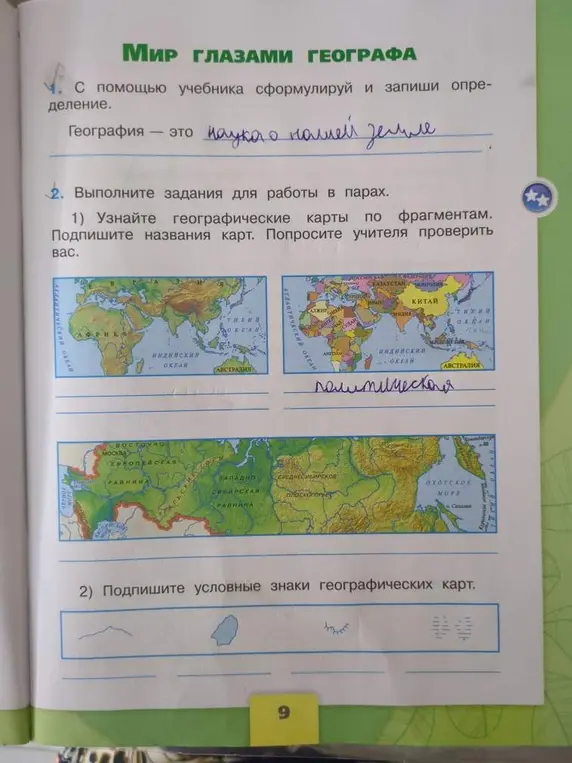 МИР ГЛАЗАМИ ГЕОГРАФА
1. С помощью учебника сформулируй и запиши опре-
деление.
География — это наука о нашей земле
2. Выполните задания для работы в парах.
1) Узнайте географические карты по фрагментам.
Подпишите названия карт. Попросите учителя проверить
вас.
ЕВРАЗИЯ
АФРИКА
ТИХИЙ
ОКЕАН
ИНДИЙСКИЙ
ОКЕАН
АВСТРАЛИЯ
АТЛАНТИЧЕСКИЙ
ОКЕАН
КАЗАХСТАН
МОНГОЛИЯ
КИТАЙ
ИРАН
ИНДИЯ
АЛЖИР
ТИХИЙ
ОКЕАН
ИНДИЙСКИЙ
ОКЕАН
АВСТРАЛИЯ
политическая
МОСКВА
ВОСТОЧНО
ЕВРОПЕЙСКАЯ
РАВНИНА
ЗАПАДНО
СИБИРСКАЯ
РАВНИНА
СРЕДНЕСИБИРСКОЕ
ПЛОСКОГОРЬЕ
ОХОТСКОЕ
МОРЕ
о. Сахалин
2) Подпишите условные знаки географических карт.
9